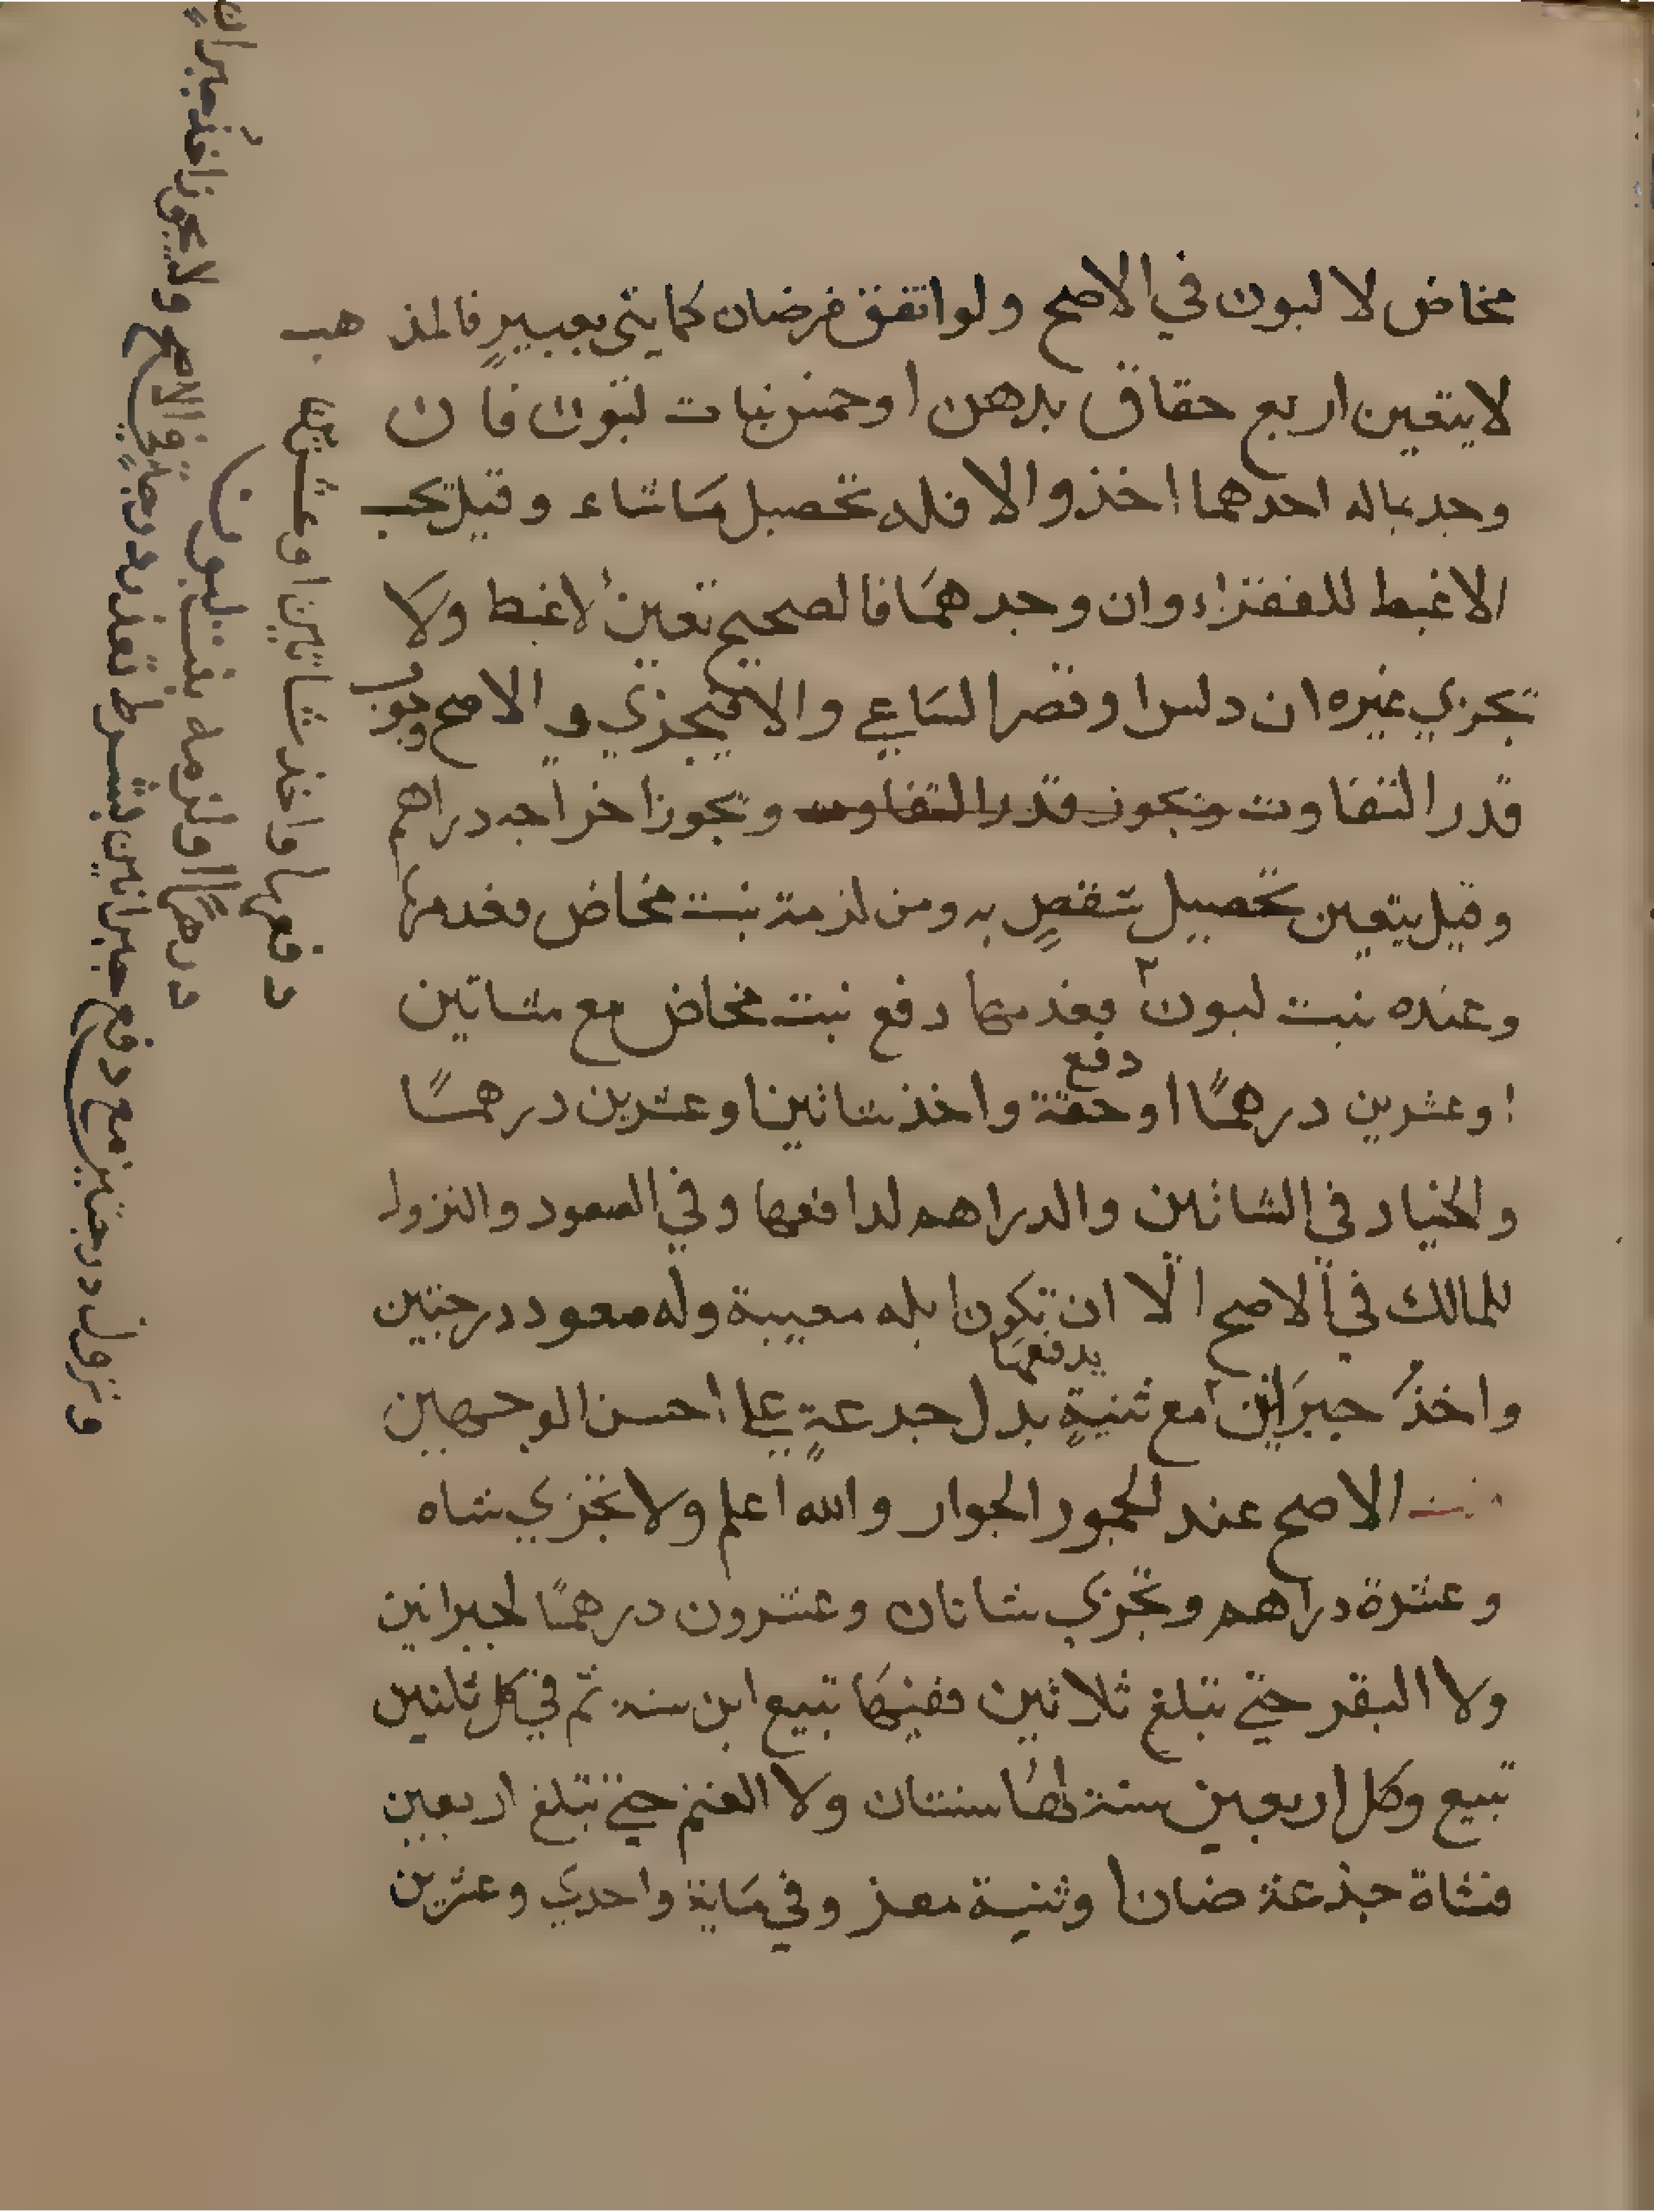 مخاض لا لبون في الاصح ولو اتفق فرضان كمايتي بعبيرٍ فالمذ هب
لا يتعين اربع حقاق بل هن او خمس بنات لبون فان
وجد بماله احدهما اخذ والا فله تحصيل ما شاء وقيل تجب
الاغبط للفقراء وان وجدهما فالصحيح تعين الاغبط ولا
تجزي غيره ان دلس او قصر الساعي والا فيجزي والاصح وجوب
قدر التفاوت وتجوز قدر التفاوت وتجوز اخراجه دراهم
وقيل يتعين تحصيل شقصٍ به ومن لزمة بنت مخاض فعدمها
وعنده بنت لبون فعدمها دفع بنت مخاض مع شاتين
او عشرين درهمًا او دفع حقة واخذ شاتين او عشرين درهمًا
والخيار في الشاتين والدراهم لدافعها وفي الصعود والنزول
للمالك في الاصح الا ان تكون ابله معيبة وله صعود درجتين
واخذُ جبرَانين مع ثنيةٍ يدفعها بدل جدعةٍ علي احسن الوجهين
الاصح عند الجمهور الجوار والله اعلم ولا تجزي شاه
وعشرة دراهم وتجزي شاتان وعشرون درهمًا لجبرانين
ولا البقر حتي تبلغ ثلاثين ففيها تبيع ابن سنة ثم في كل ثلثين
تبيع وكل اربعين سنة لها سنتان ولا الغنم حتي تبلغ اربعين
فشاة جذعة ضان او ثنية معز وفي ماية واحدي وعشرين
دفعها واخذ شاتين او عشرين
درهمًا او لزمه بنت لبون
ونزول درجتين مع دفع جبرانين بشرط تعذر درجةٍ في الاصح ولا يجوز اخذُ جبرانٍ